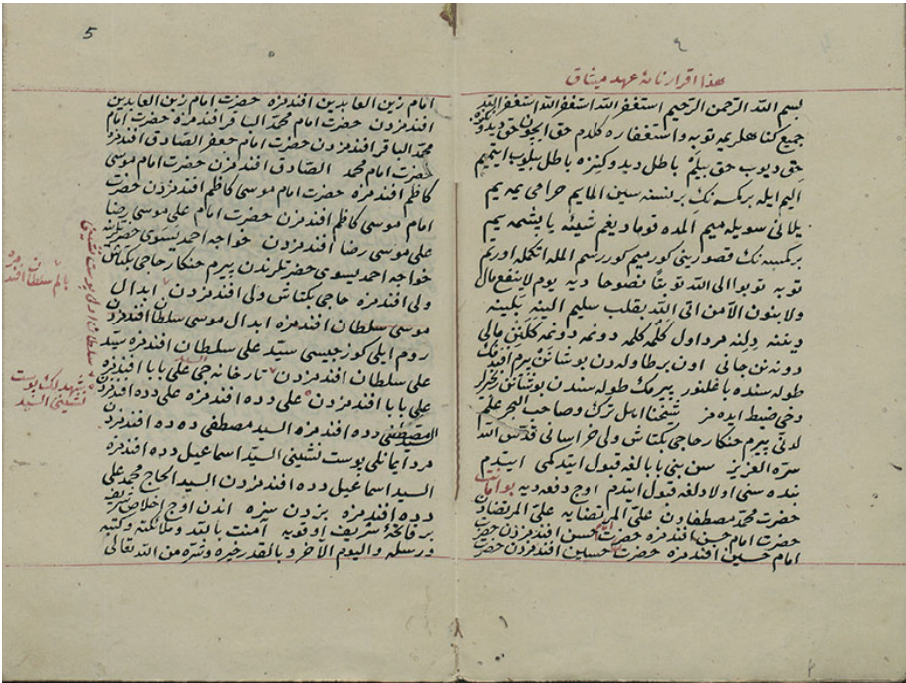 ٤
هذا اقرارنامۀ عهد میثاق
بسم الله الرحمن الرحیم استغفر الله استغفر الله استغفر الله
جمیع کناهلریمه توبه و استغفاره کلدم حق ایچون حق دیدو
حقی دیوب حق بیلم باطل دیدوکنزه باطل بیلوب ایتدیم
الیم ایله برکسه نك بر نسنه سین المایم حرامی یمه یم
یلانی سویله میم المده قومادیغم شیئه یاپشمه یم
برکسنه نك قصورینی کورمیم کوررسم المله اتکمله اورتم
توبه توبوا الی الله توبتا نصوحا دیه یوم لا ینفع مال
ولا بنون الا من اتی الله بقلب سلیم الینه بلینه
دیننه دلنه مرد اول کلمه کلمه دونمه دونمه کلنن مالی
دونه نن جانی اون بر طاوله دن بوشانن پیرم افندنك
طوله سنده باغلنور پیرمك طوله سندن بوشانن زنجیر
دخی ضبط ایده مز شیخنا اهل ترك وصاحب البحر علم
لدنی پیرم خنکار حاجی بکتاش ولی خراسانی قدس الله
سره العزیز سن بنی بابالغه قبول ایتدکمی ایتدم
بنده سنی اولادلغه قبول ایتدم اوج دفعه دیه
حضرت محمد مصطفادن علی المرتضایه علی المرتضادن
حضرت امام حسن افندمزه حضرت امام حسن افندمزدن حضرت
امام حسین افندمزه حضرت حسین افندمزدن حضرت
5
٥
امام زین العابدین افندمزه حضرت امام زین العابدین
افندمزدن حضرت امام محمد الباقر افندمزه حضرت امام
محمد الباقر افندمزدن حضرت امام جعفر الصادق افندمزه
حضرت امام محمد الصادق افندمزن حضرت امام موسی
کاظم افندمزه حضرت امام موسی کاظم افندمزدن حضرت
امام موسی کاظم افندمزن حضرت امام علی موسی رضا
علی موسی رضا افندمزدن خواجه احمد یسوی حضرتلرینه
خواجه احمد یسوی حضرتلرندن پیرم خنکار حاجی بکتاش
ولی افندمزه حاجی بکتاش ولی افندمزدن ابدال
موسی سلطان افندمزه ابدال موسی سلطان افندمزدن
روم ایلی کوزجیسی سید علی سلطان افندمزه سید
علی سلطان افندمزدن تارخانه جی علی بابا افندمزه
علی بابا افندمزدن علی دده افندمزه علی دده افندمزدن
السید مصطفی دده افندمزه السید مصطفی دده افندمزدن
مرد ایمانلی پوست نشینی السید اسماعیل دده افندمزه
السید اسماعیل دده افندمزدن السید الحاج محمد علی
دده افندمزه بزدن سزه اندن اوج اخلاص شریف
بر فاتحۀ شریف اوقویه آمنت بالله وملائکته وکتبه
ورسله والیوم الآخر وبالقدر خیره وشره من الله تعالی
بالم سلطان افندمزه
شهیدلك پوست
نشینی السید